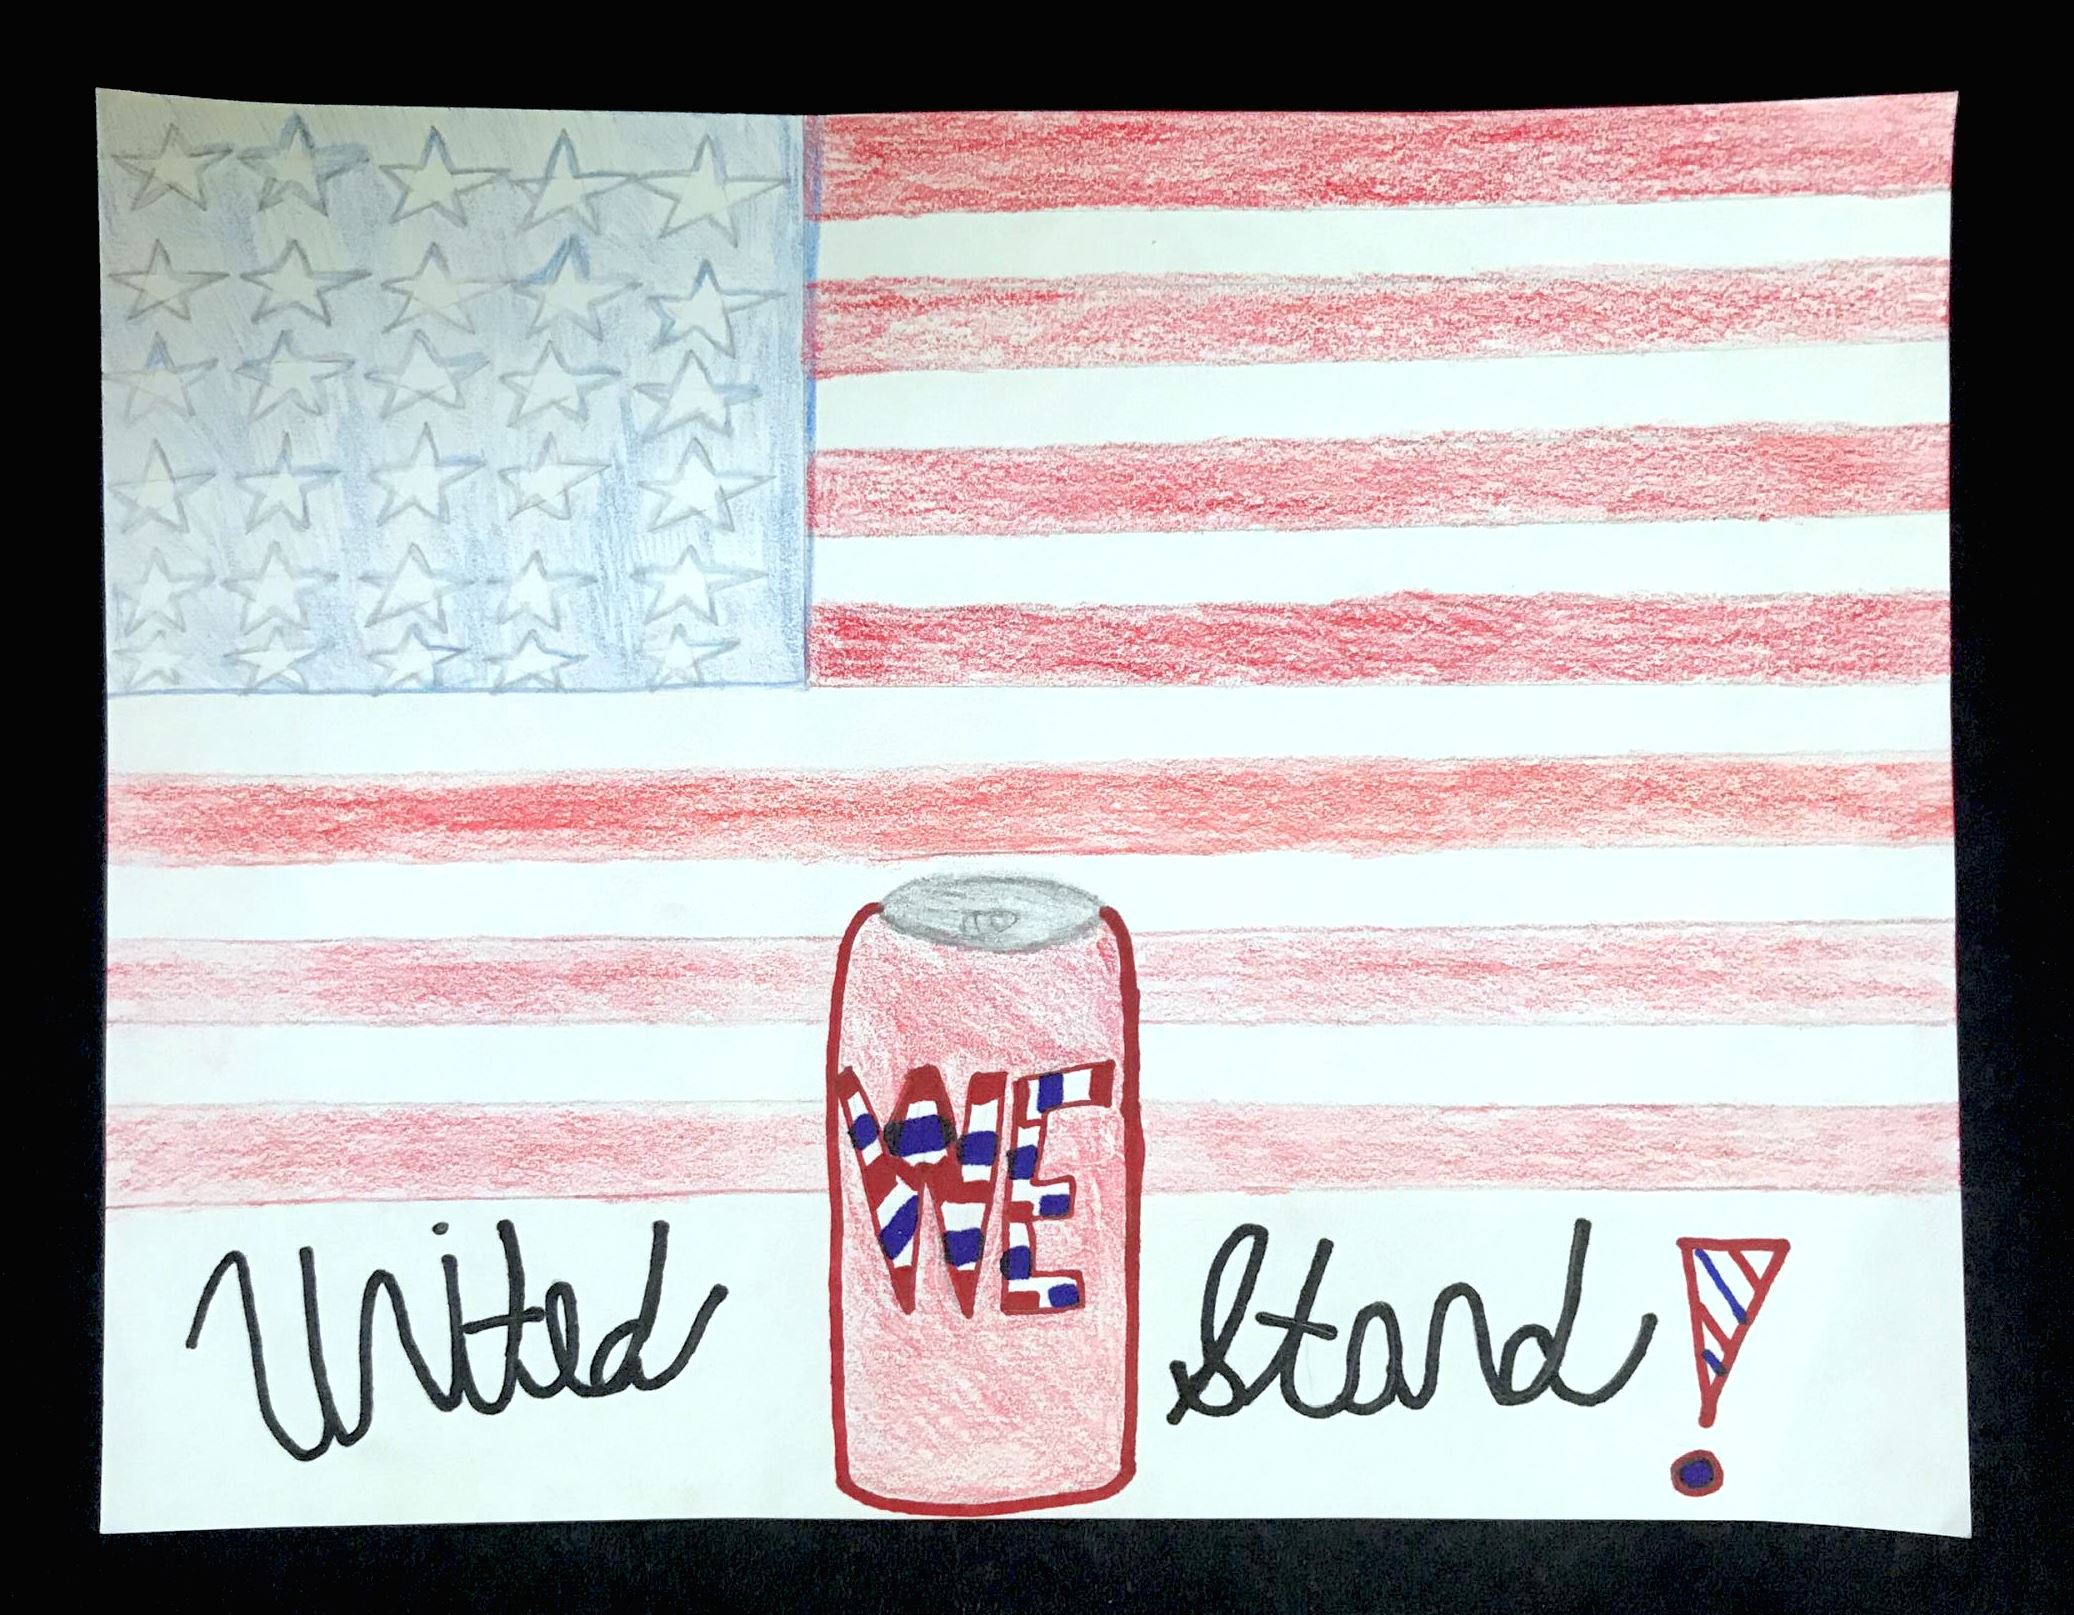 United WE Stand!